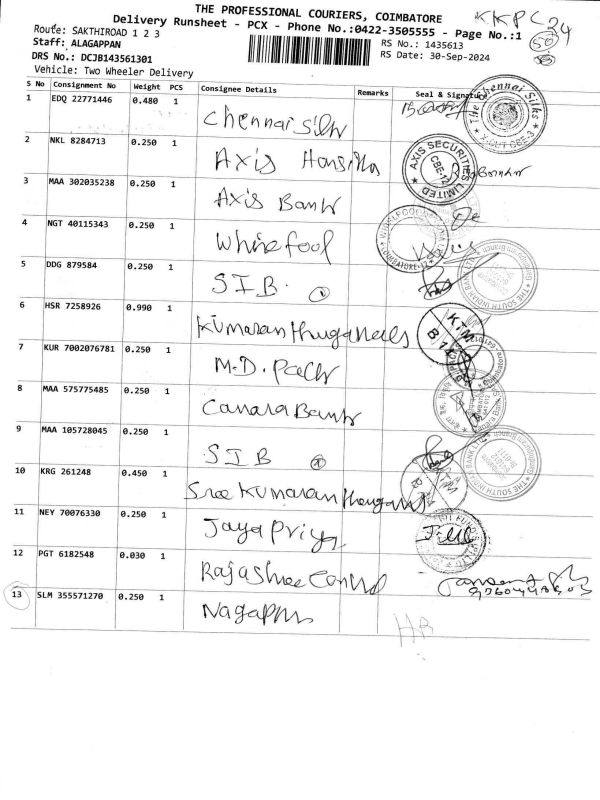 THE PROFESSIONAL COURIERS, COIMBATORE
Delivery Runsheet - PCX - Phone No.:0422-3505555 - Page No.:1
KKPC 24
50
Route: SAKTHIROAD 1 2 3
Staff: ALAGAPPAN
RS No.: 1435613
DRS No.: DCJB143561301
RS Date: 30-Sep-2024
Vehicle: Two Wheeler Delivery
S No Consignment No Weight PCS Consignee Details Remarks Seal & Signature
1 EDQ 22771446 0.480 1 Chennai Silk The Chennai Silks
2 NKL 8284713 0.250 1 Axis AXIS SECURITIES LIMITED CBE-12
3 MAA 302035238 0.250 1 Axis Bank
4 NGT 40115343 0.250 1
5 DDG 879584 0.250 1 SIB THE SOUTH INDIAN BANK LTD
6 HSR 7258926 0.990 1 KTM
7 KUR 7002076781 0.250 1 M.D.
8 MAA 575775485 0.250 1 Canara Bank
9 MAA 105728045 0.250 1 SIB THE SOUTH INDIAN BANK
10 KRG 261248 0.450 1 Sree Kumaran
11 NEY 70076330 0.250 1 Jaya Priya
12 PGT 6182548 0.030 1 Rajashree
13 SLM 355571270 0.250 1
HR